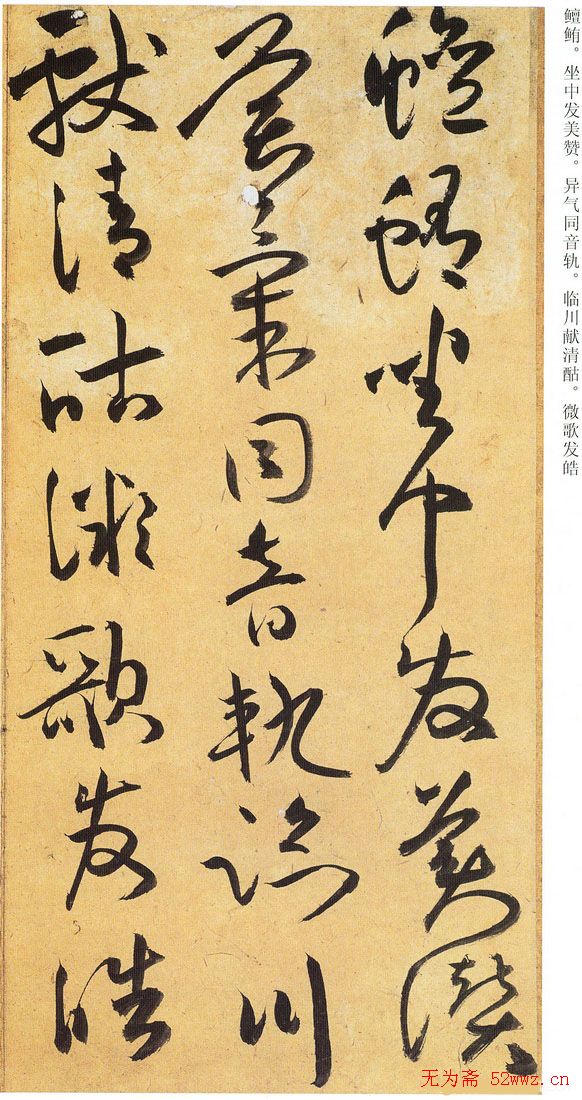 鳣鲔。坐中发美赞。异气同音轨。临川献清酤。微歌发皓
鱣鮪坐中發美讚
異氣同音軌臨川
獻清酤微歌發皓
无为斋 52wwz.cn